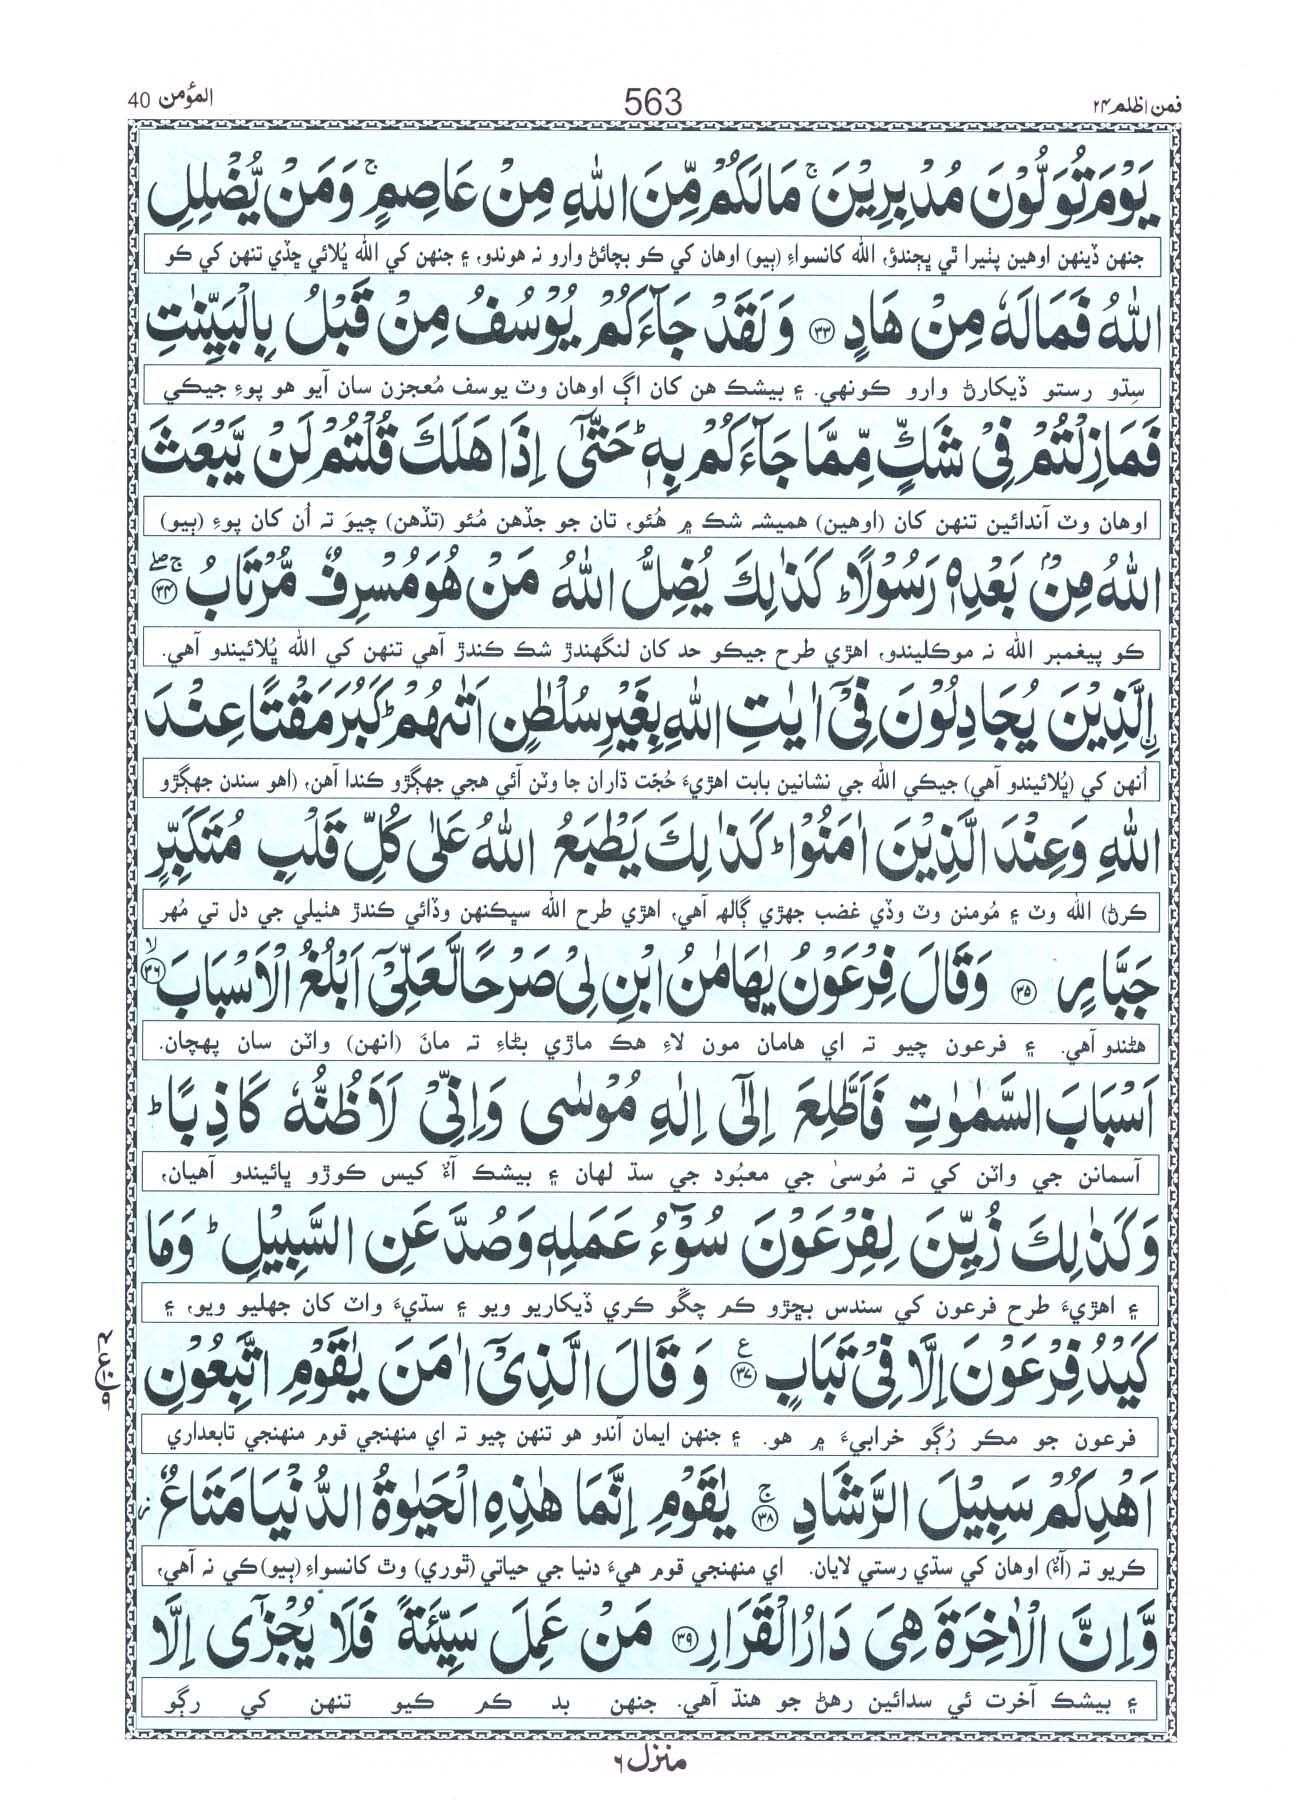 المؤمن 40
563
فمن اظلم ٢٤
يَوْمَ تُوَلُّوْنَ مُدْبِرِيْنَ ۚ مَا لَكُمْ مِّنَ اللّٰهِ مِنْ عَاصِمٍ ۚ وَمَنْ يُّضْلِلِ
جنهن ڏينهن اوهين پٺيرا ٿي ڀڄندؤ، الله کانسواءِ (ٻيو) اوهان کي ڪو بچائڻ وارو نہ هوندو، ۽ جنهن کي الله ڀُلائي ڇڏي تنهن کي ڪو
اللّٰهُ فَمَا لَهٗ مِنْ هَادٍ ﴿٣٣﴾ وَلَقَدْ جَآءَكُمْ يُوْسُفُ مِنْ قَبْلُ بِالْبَيِّنٰتِ
سِڌو رستو ڏيکارڻ وارو ڪونهي. ۽ بيشڪ هن کان اڳ اوهان وٽ يوسف مُعجزن سان آيو هو پوءِ جيڪي
فَمَا زِلْتُمْ فِيْ شَكٍّ مِّمَّا جَآءَكُمْ بِهٖ ؕ حَتّٰٓى اِذَا هَلَكَ قُلْتُمْ لَنْ يَّبْعَثَ
اوهان وٽ آندائين تنهن کان (اوهين) هميشہ شڪ ۾ هُئو، تان جو جڏهن مُئو (تڏهن) چيوَ تہ اُن کان پوءِ (ٻيو)
اللّٰهُ مِنْۢ بَعْدِهٖ رَسُوْلًا ؕ كَذٰلِكَ يُضِلُّ اللّٰهُ مَنْ هُوَ مُسْرِفٌ مُّرْتَابُ ۚۖ ﴿٣٤﴾
ڪو پيغمبر الله نہ موڪليندو، اهڙي طرح جيڪو حد کان لنگهندڙ شڪ ڪندڙ آهي تنهن کي الله ڀُلائيندو آهي.
اِۨلَّذِيْنَ يُجَادِلُوْنَ فِيْٓ اٰيٰتِ اللّٰهِ بِغَيْرِ سُلْطٰنٍ اَتٰىهُمْ ؕ كَبُرَ مَقْتًا عِنْدَ
اُنهن کي (ڀُلائيندو آهي) جيڪي الله جي نشانين بابت اهڙيءَ حُجّت ڌاران جا وٽن آئي هجي جهڳڙو ڪندا آهن، (اهو سندن جهڳڙو
اللّٰهِ وَعِنْدَ الَّذِيْنَ اٰمَنُوْا ؕ كَذٰلِكَ يَطْبَعُ اللّٰهُ عَلٰى كُلِّ قَلْبِ مُتَكَبِّرٍ
ڪرڻ) الله وٽ ۽ مُومنن وٽ وڏي غضب جهڙي ڳالهہ آهي، اهڙي طرح الله سڀڪنهن وڏائي ڪندڙ هٺيلي جي دل تي مُهر
جَبَّارٍ ﴿٣٥﴾ وَقَالَ فِرْعَوْنُ يٰهَامٰنُ ابْنِ لِيْ صَرْحًا لَّعَلِّيْٓ اَبْلُغُ الْاَسْبَابَ ۙ ﴿٣٦﴾
هڻندو آهي. ۽ فرعون چيو تہ اي هامان مون لاءِ هڪ ماڙي بڻاءِ تہ مانَ (انهن) واٽن سان پهچان.
اَسْبَابَ السَّمٰوٰتِ فَاَطَّلِعَ اِلٰٓى اِلٰهِ مُوْسٰى وَاِنِّيْ لَاَظُنُّهٗ كَاذِبًا ؕ
آسمانن جي واٽن کي تہ مُوسىٰ جي معبُود جي سڌ لهان ۽ بيشڪ آءٌ کيس ڪوڙو ڀائيندو آهيان،
وَكَذٰلِكَ زُيِّنَ لِفِرْعَوْنَ سُوْٓءُ عَمَلِهٖ وَصُدَّ عَنِ السَّبِيْلِ ؕ وَمَا
۽ اهڙيءَ طرح فرعون کي سندس بڇڙو ڪم چڱو ڪري ڏيکاريو ويو ۽ سڌيءَ واٽ کان جهليو ويو، ۽
كَيْدُ فِرْعَوْنَ اِلَّا فِيْ تَبَابٍ ﴿٣٧﴾ ع وَقَالَ الَّذِيْٓ اٰمَنَ يٰقَوْمِ اتَّبِعُوْنِ
فرعون جو مڪر رُڳو خرابيءَ ۾ هو. ۽ جنهن ايمان آندو هو تنهن چيو تہ اي منهنجي قوم منهنجي تابعداري
اَهْدِكُمْ سَبِيْلَ الرَّشَادِ ۚ ﴿٣٨﴾ يٰقَوْمِ اِنَّمَا هٰذِهِ الْحَيٰوةُ الدُّنْيَا مَتَاعٌ ؗ
ڪريو تہ (آءٌ) اوهان کي سڌي رستي لايان. اي منهنجي قوم هيءَ دنيا جي حياتي (ٿوري) وٿ کانسواءِ (ٻيو) ڪي نہ آهي،
وَّاِنَّ الْاٰخِرَةَ هِيَ دَارُ الْقَرَارِ ﴿٣٩﴾ مَنْ عَمِلَ سَيِّئَةً فَلَا يُجْزٰٓى اِلَّا
۽ بيشڪ آخرت ئي سدائين رهڻ جو هنڌ آهي. جنهن بد ڪم ڪيو تنهن کي رڳو
منزل ٦